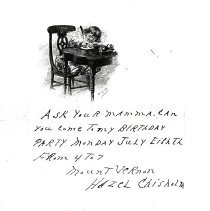 Ask Your mamma. Can
you come to my BIRTHDAY
PARTY MONDAY JULY EIGHTH
FROM 4 TO 7
MOUNT VERNON
HAZEL CHISHOLM